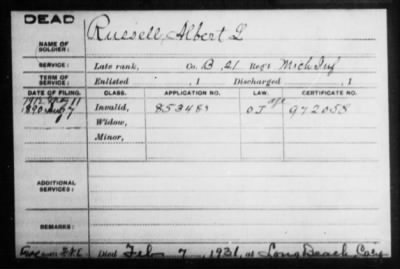 DEAD
NAME OF SOLDIER: Russell, Albert L
SERVICE: Late rank, Co. B, 21 Reg't Mich Inf
TERM OF SERVICE: Enlisted , 1 Discharged , 1
DATE OF FILING. CLASS. APPLICATION NO. LAW. CERTIFICATE NO.
1912 May 11
1890 Aug 7 Invalid, 853483 OJ age 972058
Widow,
Minor,
ADDITIONAL SERVICES:
REMARKS:
Died Feb 7, 1931, at Long Beach, Cal